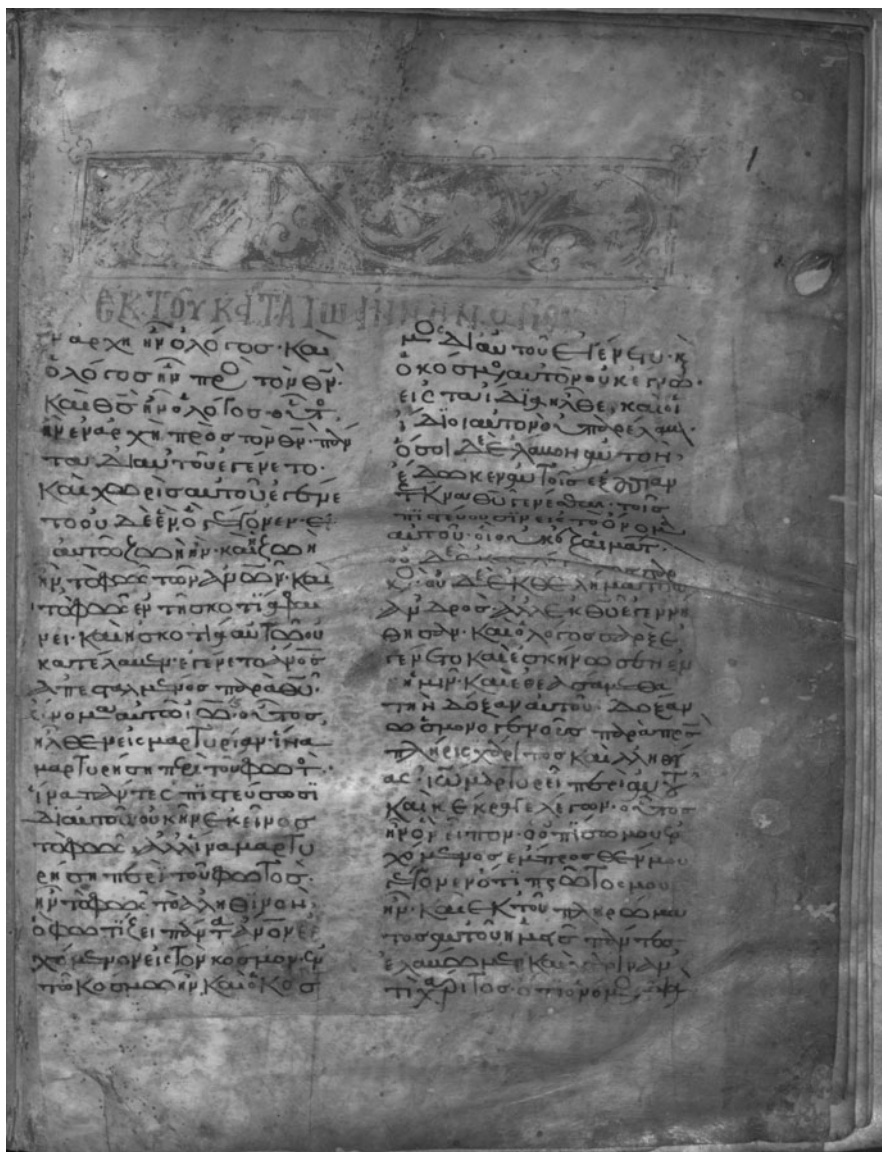 ΕΚ ΤΟΥ ΚΑΤΑ ΙΩ
ν ἀρχῆ ἦν ὁ λόγος· καὶ
ὁ λόγος ἦν πρὸ τὸν θν·
καὶ θς ἦν ὁ λόγος· οὗτ
ἦν ἐν ἀρχῆ πρὸς τὸν θν· πάν
τα δι αυτοῦ ἐγένετο·
καὶ χωρὶς αυτοῦ ἐγένε
το οὐδὲ ἕν ὃ γέγονεν· ἐ
αυτῶ ζωὴ ἦν· καὶ ἡ ζωὴ
ἦν τὸ φῶς τῶν ἀνων· καὶ
τὸ φῶς ἐν τῆ σκοτία φαι
νει· καὶ ἡ σκοτία αυτὸ οὐ
κατέλαβεν· ἐγένετο ἀνος
ἀπεσταλμένος παρὰ θυ·
ὄνομα αυτῶ ιω· οὗτος
ἦλθεν εἰς μαρτυρίαν· ἵνα
μαρτυρήση περὶ τοῦ φωτ·
ἵνα πάντες πιστεύσωσϊ
δι αυτοῦ· οὐκ ἦν ἐκεῖνος
τὸ φῶς· ἀλλ ἵνα μαρτυ
ρήση περὶ τοῦ φωτὸς·
ἦν τὸ φῶς τὸ ἀληθϊνὸν·
ὃ φωτϊζει πάντα ἀνον ἐρ
χόμενον εἰς τὸν κόσμον· ἐν
τῶ κόσμω ἦν, καὶ ὁ κοσ
μος δι αυτοῦ ἐγένετο· κ
ὁ κόσμος αυτὸν οὐκ ἔγνω·
εἰς τὰ ϊδϊα ἦλθε, καὶ οἱ
ϊδιοι αυτὸν οὐ παρέλαβ·
ὅσοι δὲ ἔλαβον αυτὸν,
ἔδωκεν αυτοῖς ἐξουσίαν
τέκνα θυ γενέσθαι· τοῖς
πϊστεύουσϊν εἰς τὸ ὄνομα
αυτοῦ· οἳ οὐκ ἐξ αἱμάτ·
οὐδὲ σαρ
κ· οὐδὲ ἐκ θελήματος
ἀνδρὸς· ἀλλ ἐκ θυ ἐγεννή
θησαν· καὶ ὁ λόγος σὰρξ ἐ
γένετο καὶ ἐσκήνωσεν ἐν
ἡμῖν· καὶ ἐθεασάμεθα
τὴν δόξαν αυτοῦ· δόξαν
ὡς μονογενοῦς παρὰ πρς
πλήρις χάριτος καὶ ἀληθεί
ας· ιω μαρτυρεῖ περὶ αυτοῦ
καὶ κέκραγε λέγων· οὗτος
ἦν ὃν εἶπον· ὁ ὀπίσω μου ἐρ
χόμενος ἔμπροσθέν μου
γέγονεν ὅτϊ πρῶτος μου
ἦν· καὶ ἐκ τοῦ πληρώμα
τος αυτοῦ ἡμεῖς πάντες
ἐλάβωμεν καὶ χάριν ἀν
τϊ χάριτος· ὅτι ὁ νόμος